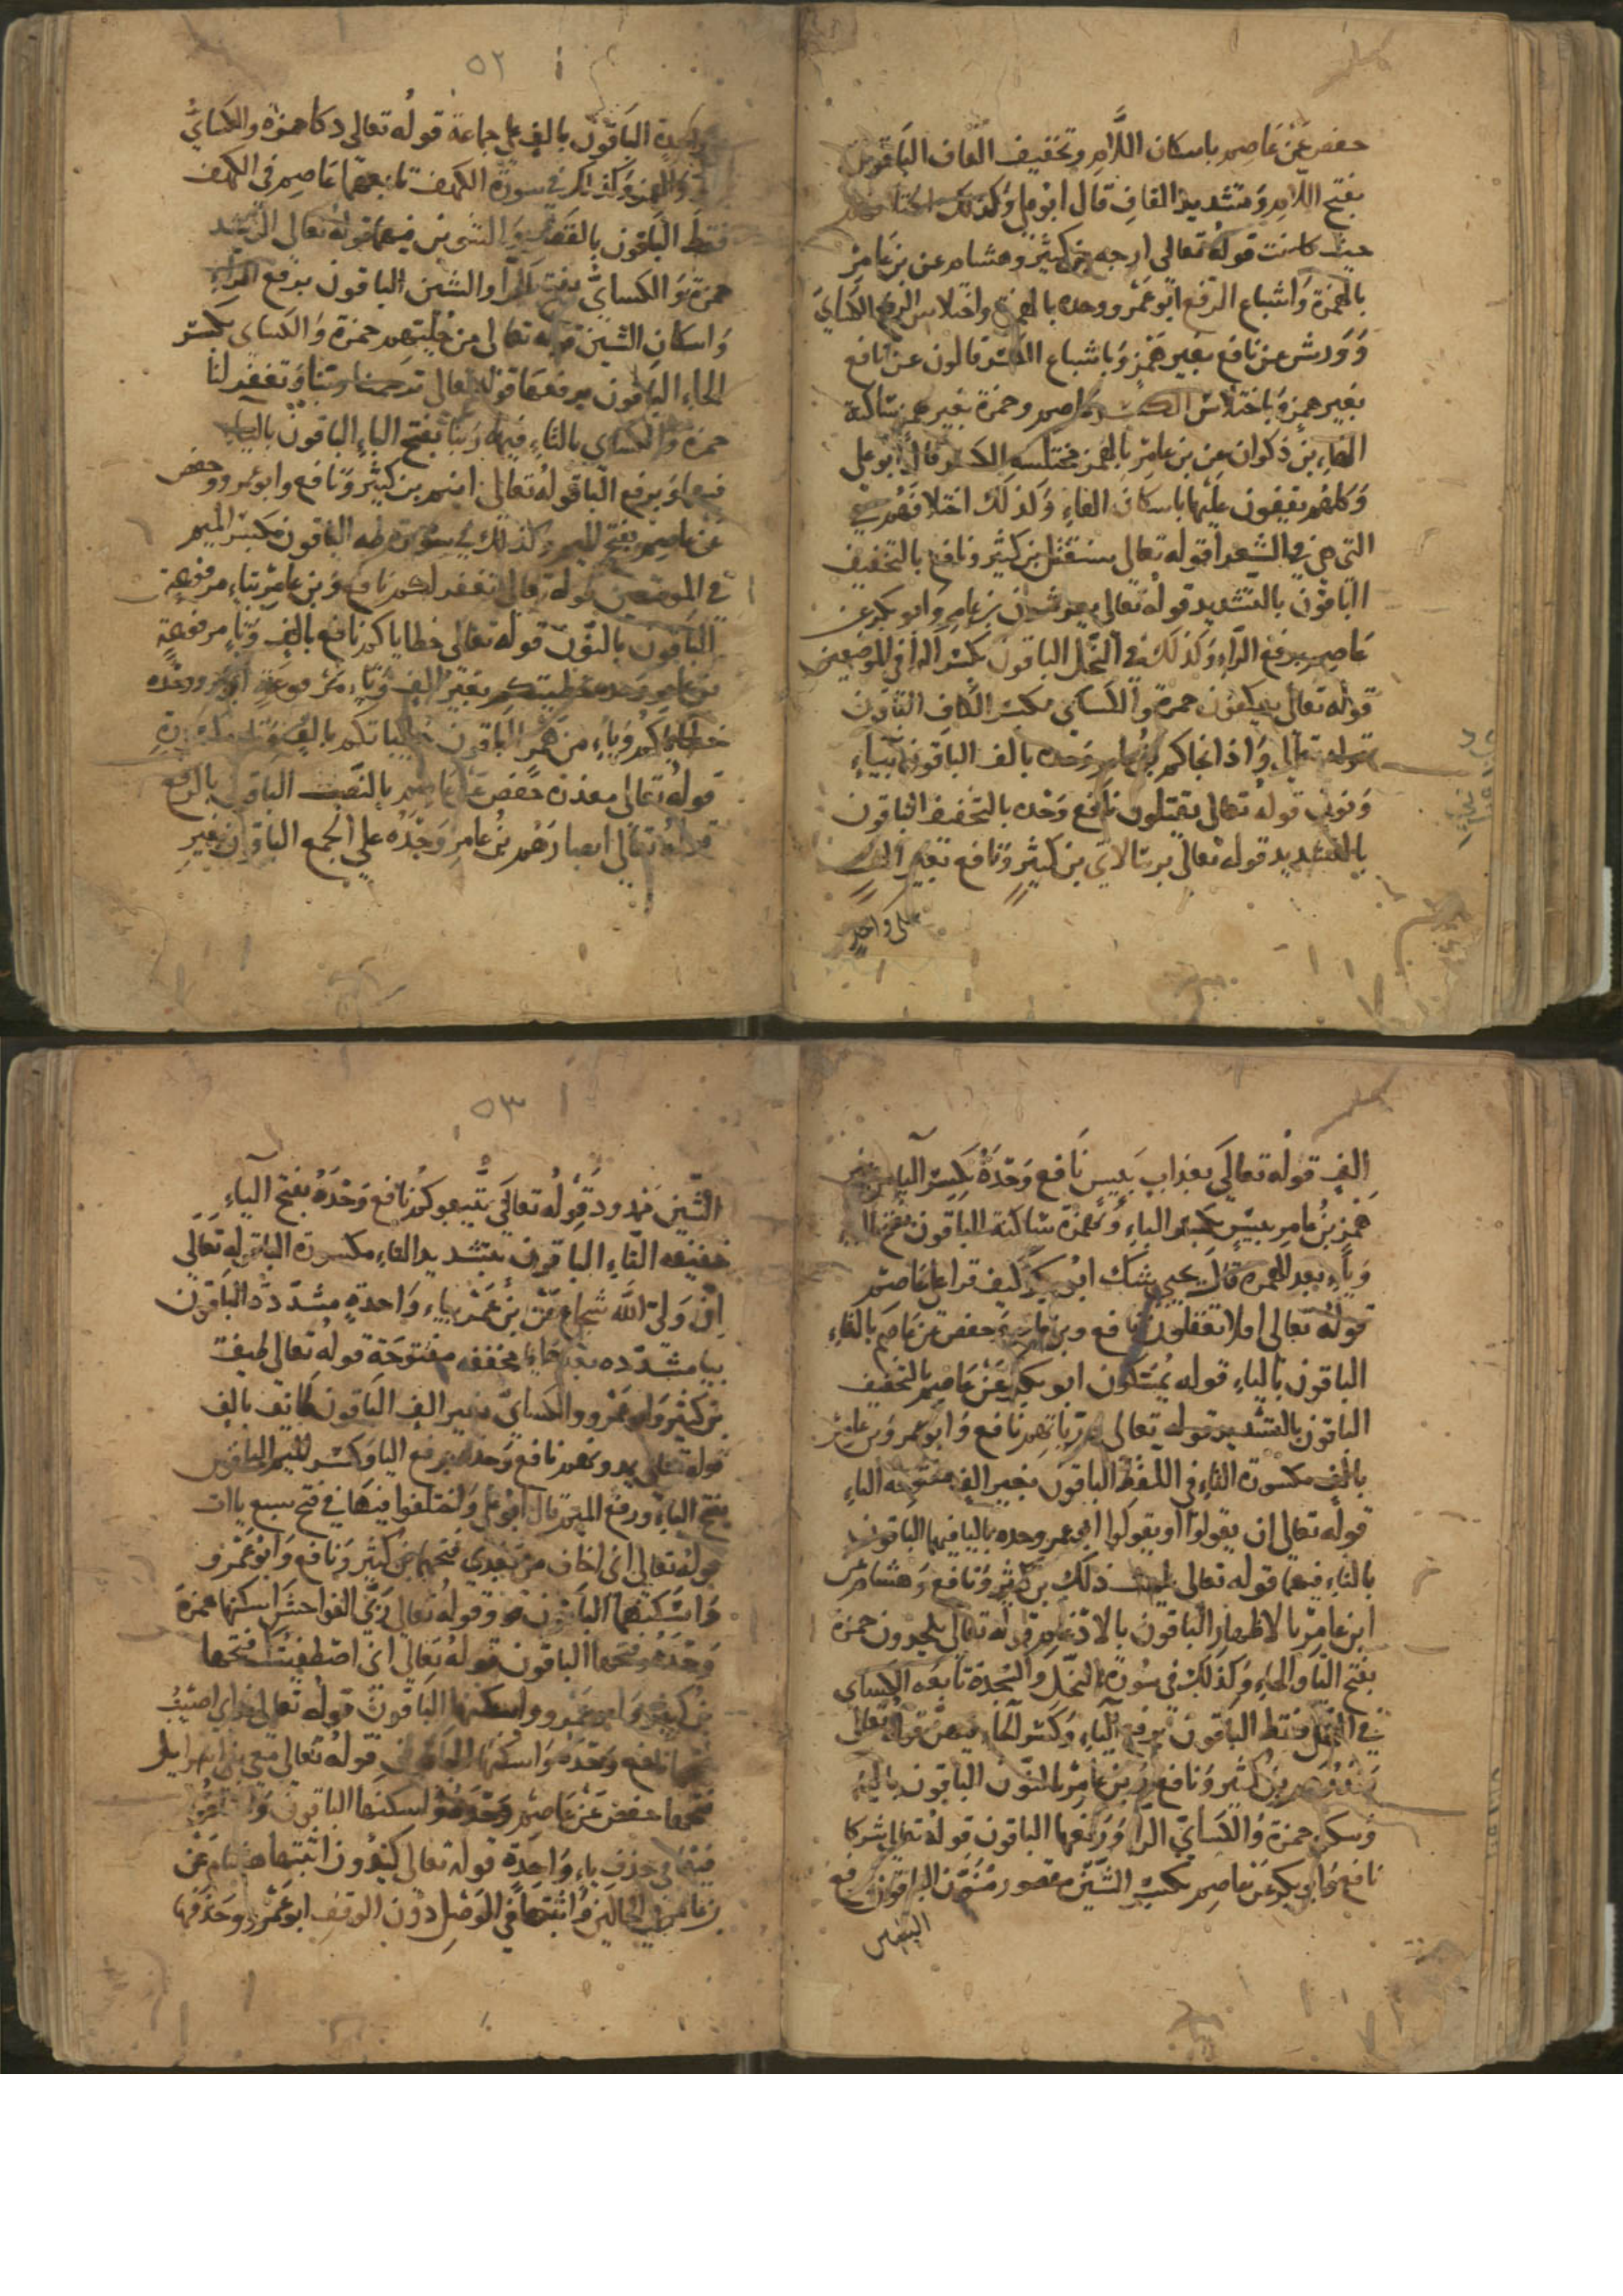 حفص عن عاصم باسكان اللام وتخفيف القاف الباقون
بفتح اللام وتشديد القاف قال ابو علي وكذلك اختلافهم
حيث كانت قوله تعالى ارجه بن كثير وهشام عن بن عامر
بالهمزة واشباع الرفع ابو عمرو وحده بالهمز واختلاس الرفع الكساي
وورش عن نافع بغير همز وباشباع الكسر قالون عن نافع
بغير همز وباختلاس الكسر عاصم وحمزة بغير همز ساكنة
الهاء بن ذكوان عن بن عامر بالهمز مختلسه الكسر قال ابو علي
وكلهم يقفون عليها باسكان الهاء وكذلك اختلافهم في
التي هي في الشعرا قوله تعالى سنقتل بن كثير ونافع بالتخفيف
الباقون بالتشديد قوله تعالى يعرشون بن عامر وابو بكر عن
عاصم برفع الراء وكذلك في النحل الباقون بكسر الرا في الموضعين
قوله تعالى يعكفون حمزة والكساي بكسر الكاف الباقون
قوله تعالى واذ انجاكم بن عامر وحده بالف الباقون بياء
ونون قوله تعالى يقتلون نافع وحده بالتخفيف الباقون
بالتشديد قوله تعالى برسالاتي بن كثير ونافع بغير الف
على واحد
٥٢
واحدة الباقون بالف على جماعة قوله تعالى دكا حمزة والكساي
والهمز وكذلك في سورة الكهف تابعهما عاصم في الكهف
فقط الباقون بالقصر والتنوين فيهما قوله تعالى الرشد
حمزة والكساي بفتح الرا والشين الباقون برفع الراء
واسكان الشين قوله تعالى من حليتهم حمزة والكساي بكسر
الحاء الباقون برفعها قوله تعالى ترحمنا ربنا وتغفر لنا
حمزة والكساي بالتاء فيهما وربنا بفتح الباء الباقون بالياء
فيهما وبرفع البا قوله تعالى ابن ام بن كثير ونافع وابو عمرو وحفص
عن عاصم بفتح الميم وكذلك في سورة طه الباقون بكسر الميم
في الموضعين قوله تعالى تغفر لكم نافع وبن عامر بتاء مرفوعة
الباقون بالنون قوله تعالى خطاياكم نافع بالف وتاء مرفوعة
بن عامر وحده خطيتكم بغير الف وتاء مرفوعة ابو عمرو وحده
خطاياكم وياء من غير همز الباقون خطياتكم بالف وتاء مكسورة
قوله تعالى معذرة حفص عن عاصم بالنصب الباقون بالرفع
قوله تعالى اصارهم بن عامر وحده على الجمع الباقون بغير
الف قوله تعالى بعذاب بيس نافع وحده بكسر الباء من غير
همز بن عامر بيس بكسر الباء وهمزة ساكنة الباقون بفتح الباء
وياء بعد الهمزة قال يحيى شك ابو بكر كيف قرا على عاصم
قوله تعالى افلا تعقلون نافع وبن عامر وحفص عن عاصم بالتاء
الباقون بالياء قوله يمسكون ابو بكر عن عاصم بالتخفيف
الباقون بالتشديد قوله تعالى ذرياتهم نافع وابو عمرو وبن عامر
بالف مكسورة التاء في اللفظ الباقون بغير الف مفتوحه التاء
قوله تعالى ان يقولوا او يقولوا ابو عمرو وحده باليا فيهما الباقون
بالتاء فيهما قوله تعالى يلهث ذلك بن كثير ونافع وهشام عن
ابن عامر بالاظهار الباقون بالادغام قوله تعالى يلحدون حمزة
بفتح الياء والحاء وكذلك في سورة النحل والسجدة تابعه الكساي
في النحل فقط الباقون برفع الياء وكسر الحاء فيهن قوله تعالى
ويذرهم بن كثير ونافع وبن عامر بالنون الباقون بالياء
وسكن حمزة والكساي الرا ورفعها الباقون قوله تعالى شركا
نافع وابو بكر عن عاصم بكسر الشين مقصور منون الباقون برفع
الشين
٥٣
الشين ممدود قوله تعالى يتبعوكم نافع وحده بفتح الباء
خفيفه التاء الباقون بتشديد التاء مكسورة البا قوله تعالى
ان ولي الله شجاع عن بن عمرو بياء واحدة مشددة الباقون
بيا مشدده بعدها يا مخففه مفتوحة قوله تعالى طيف
بن كثير وابو عمرو والكساي بغير الف الباقون طائف بالف
قوله تعالى يمدونهم نافع وحده برفع اليا وكسر الميم الباقون
بفتح الياء ورفع الميم قال ابو علي واختلفوا فيها في فتح سبع ياات
قوله تعالى اني اخاف من بعدي فتحهما بن كثير ونافع وابو عمرو
واسكنهما الباقون وقوله تعالى ربي الفواحش اسكنها حمزة
وحده وفتحها الباقون قوله تعالى اني اصطفيتك فتحها
بن كثير وابو عمرو واسكنها الباقون قوله تعالى عذابي اصيب
فتحها نافع وحده واسكنها الباقون قوله تعالى معي بني اسرايل
فتحها حفص عن عاصم وحده واسكنها الباقون واختلفوا
فيها في حذف ياء واحدة قوله تعالى كيدون اثبتها هشام عن
بن عامر في الحالين واثبتها في الوصل دون الوقف ابو عمرو وحذفها